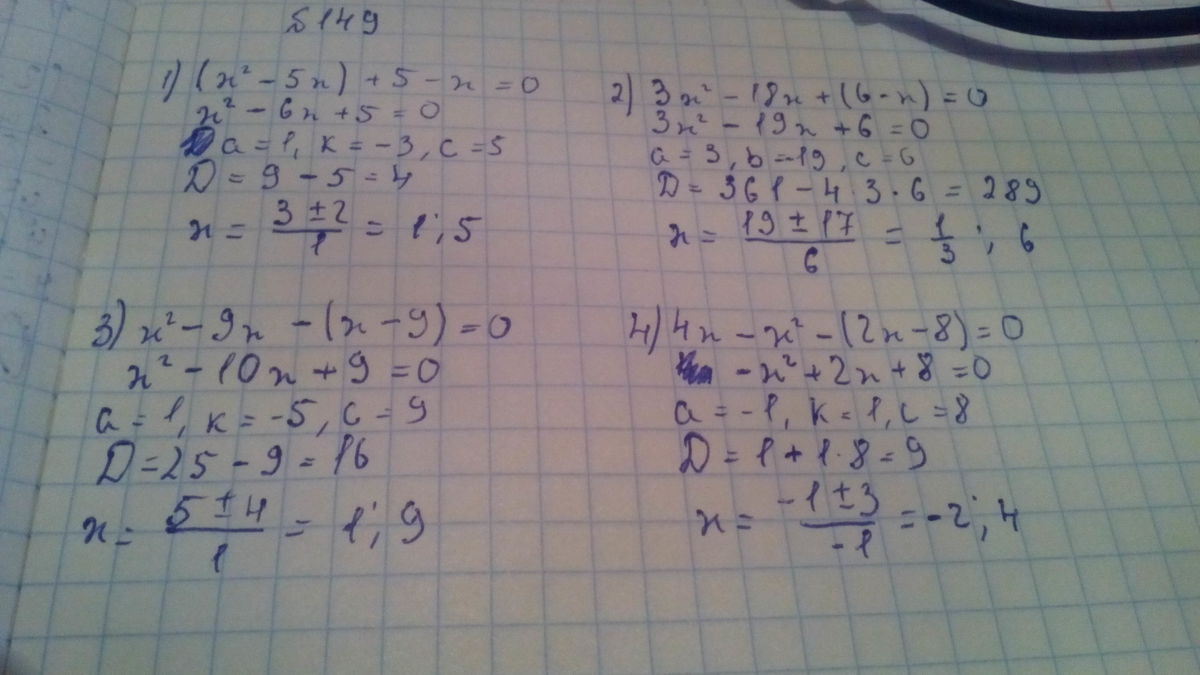 №149
1) (x² - 5x) + 5 - x = 0
x² - 6x + 5 = 0
a = 1, k = -3, c = 5
D = 9 - 5 = 4
x = (3 ± 2)/1 = 1; 5
2) 3x² - 18x + (6 - x) = 0
3x² - 19x + 6 = 0
a = 3, b = -19, c = 6
D = 361 - 4·3·6 = 289
x = (19 ± 17)/6 = 1/3; 6
3) x² - 9x - (x - 9) = 0
x² - 10x + 9 = 0
a = 1, k = -5, c = 9
D = 25 - 9 = 16
x = (5 ± 4)/1 = 1; 9
4) 4x - x² - (2x - 8) = 0
-x² + 2x + 8 = 0
a = -1, k = 1, c = 8
D = 1 + 1·8 = 9
x = (-1 ± 3)/-1 = -2; 4